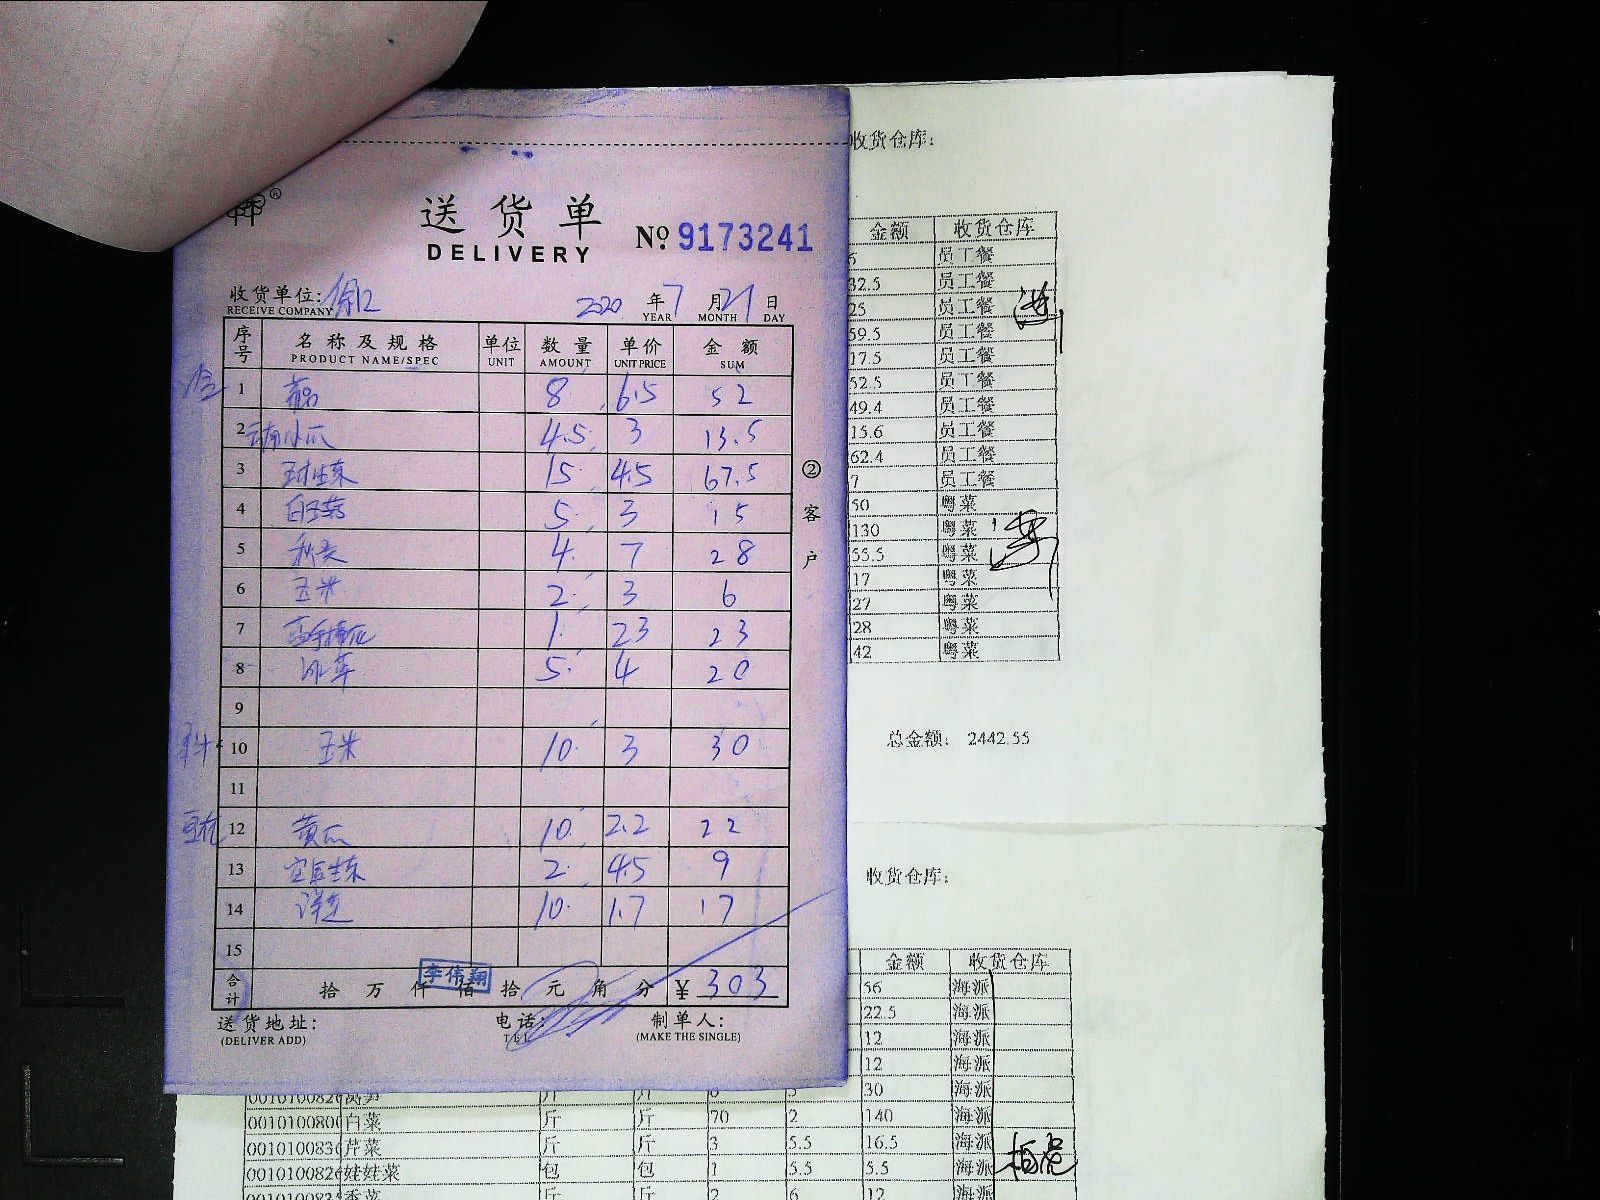 送货单
DELIVERY
№ 9173241
收货单位: 徐汇 2020 年 7 月 21 日
RECEIVE COMPANY YEAR MONTH DAY
序号 名称及规格 单位 数量 单价 金额
PRODUCT NAME/SPEC UNIT AMOUNT UNIT PRICE SUM
1 8 6.5 52
2 云南小瓜 4.5 3 13.5
3 15 4.5 67.5
4 5 3 15
5 秋葵 4 7 28
6 玉米 2 3 6
7 1 23 23
8 冰草 5 4 20
9
10 玉米 10 3 30
11
12 黄瓜 10 2.2 22
13 2 4.5 9
14 10 1.7 17
15
合计 拾 万 仟 佰 拾 元 角 分 ¥ 303
李伟翔
送货地址: 电话: 制单人:
(DELIVER ADD) TEL (MAKE THE SINGLE)
②客户
收货仓库:
金额 收货仓库
5 员工餐
32.5 员工餐
25 员工餐
59.5 员工餐
17.5 员工餐
52.5 员工餐
49.4 员工餐
15.6 员工餐
62.4 员工餐
7 员工餐
50 粤菜
130 粤菜
55.5 粤菜
17 粤菜
27 粤菜
28 粤菜
42 粤菜
总金额: 2442.55
收货仓库:
金额 收货仓库
56 海派
22.5 海派
12 海派
12 海派
30 海派
0010100800 白菜 斤 斤 70 2 140 海派
001010083 芹菜 斤 斤 3 5.5 16.5 海派
001010082 娃娃菜 包 包 1 5.5 5.5 海派
香菜 斤 斤 2 6 12 海派